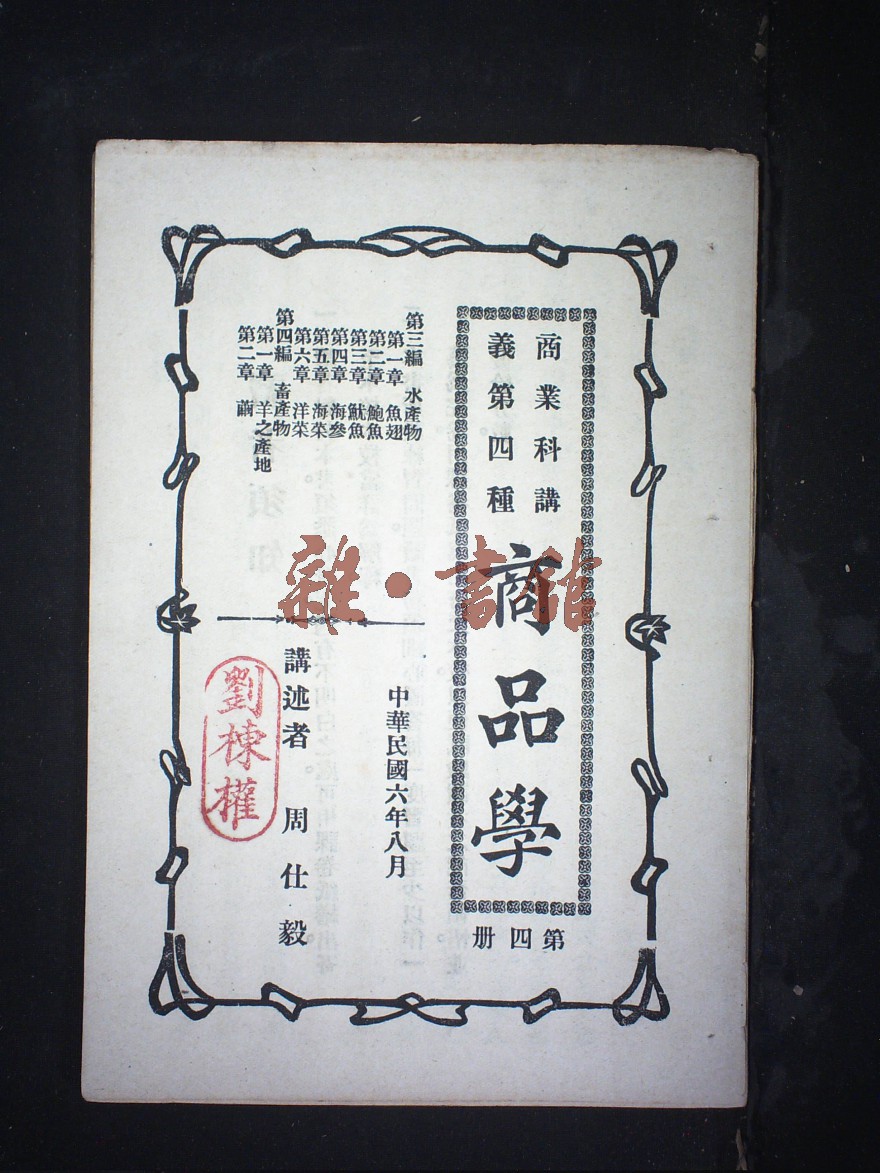 商業科講
義第四種
商品學
第四册
第三編 水產物
第一章 魚翅
第二章 鮑魚
第三章 魷魚
第四章 海參
第五章 海菜
第六章 洋菜
第四編 畜產物
第一章 羊之產地
第二章 繭
中華民國六年八月
講述者 周仕毅
劉棟權
雜·書館